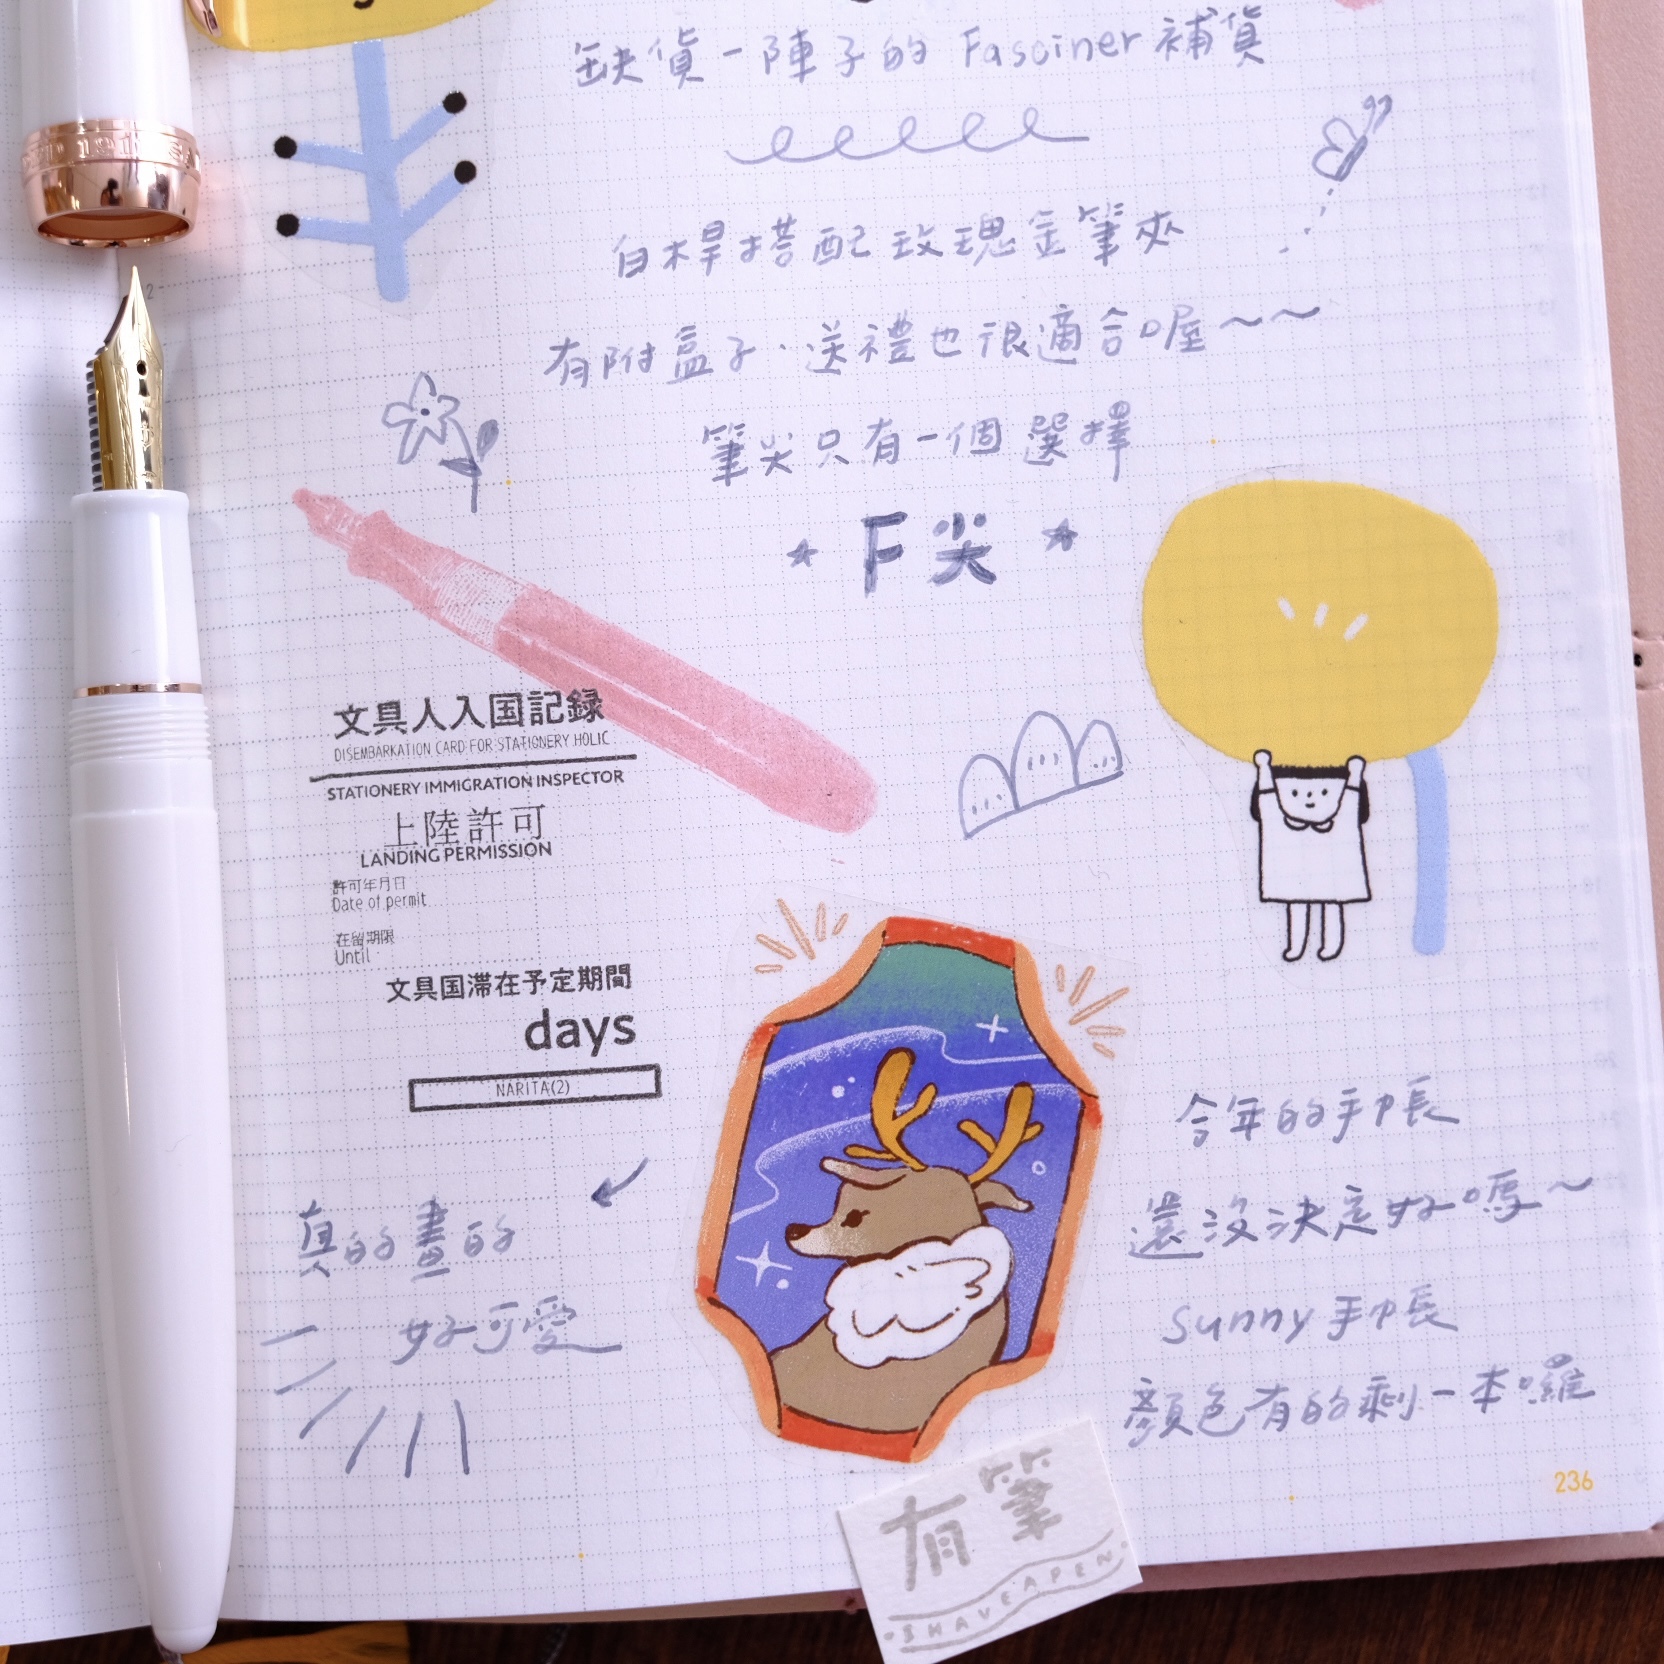 缺貨一陣子的 Fasciner 補貨
白桿搭配玫瑰金筆夾
有附盒子,送禮也很適合喔~~
筆尖只有一個選擇
F尖
文具人入国記録
DISEMBARKATION CARD FOR STATIONERY HOLIC
STATIONERY IMMIGRATION INSPECTOR
上陸許可
LANDING PERMISSION
許可年月日
Date of permit
在留期限
Until
文具国滞在予定期間
days
NARITA(2)
真的畫的
好可愛
今年的手帳
還沒決定好嗎~
sunny手帳
顏色有的剩一本囉
236
有筆
SHAVEAPEN